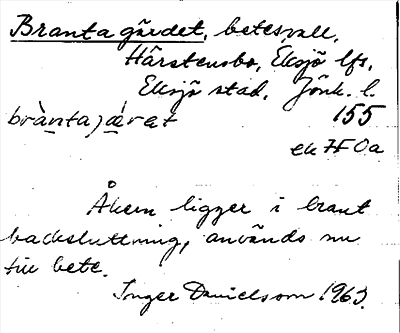 Branta gärdet, betesvall,
Hårstensbo, Eksjö lfs,
Eksjö stad, Jönk. l.
bràntajæ̀rət 155
ek 7F 0a
Åkern ligger i brant
backsluttning, används nu
till bete.
Inger Danielsson 1963.